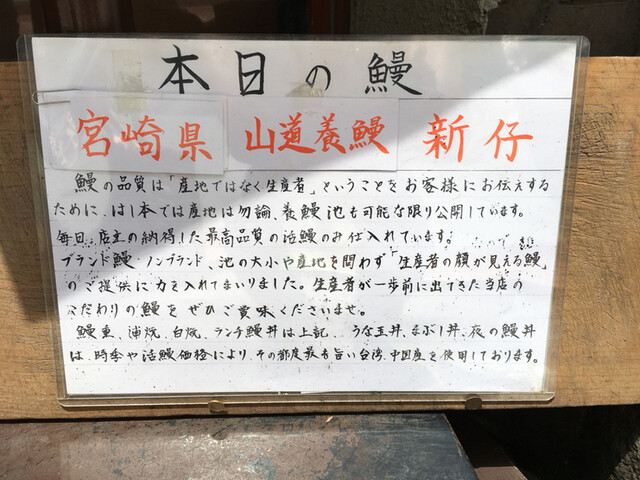 本日の鰻
宮崎県 山道養鰻 新仔
鰻の品質は「産地ではなく生産者」ということをお客様にお伝えする
ために、はし本では産地は勿論、養鰻池も可能な限り公開しています。
毎日、店主の納得した最高品質の活鰻のみ仕入れています。
ブランド鰻・ノンブランド、池の大小や産地を問わず「生産者の顔が見える鰻」
のご提供に力を入れてまいりました。生産者が一歩前に出てきた当店の
こだわりの鰻をぜひご賞味くださいませ。
鰻重、蒲焼、白焼、ランチ鰻丼は上記、うな玉丼、まぶし丼、夜の鰻丼
は、時季や活鰻価格により、その都度最も旨い台湾、中国産を使用しております。